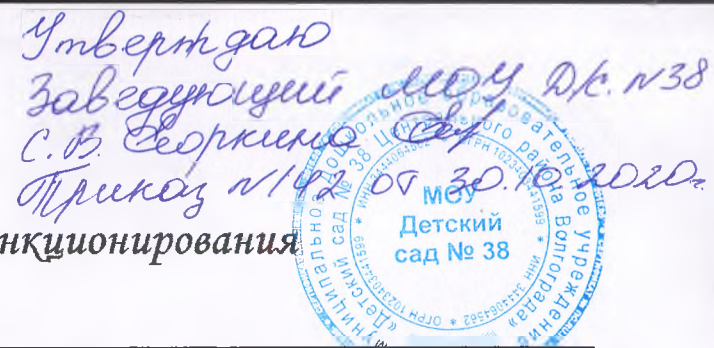 Утверждаю
Заведующий МОУ Д/с. N38
С. В.
Приказ N142 от 30.10.2020г.
нкционирования
МОУ
Детский
сад № 38
Муниципальное дошкольное образовательное учреждение
«Детский сад № 38 Центрального района Волгограда»
* ИНН 3444064562 * ОГРН 1023403441599 * ИНН 3444064562 * ОГРН 1023403441599